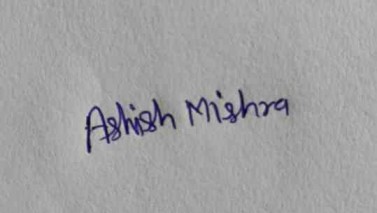 Ashish Mishra